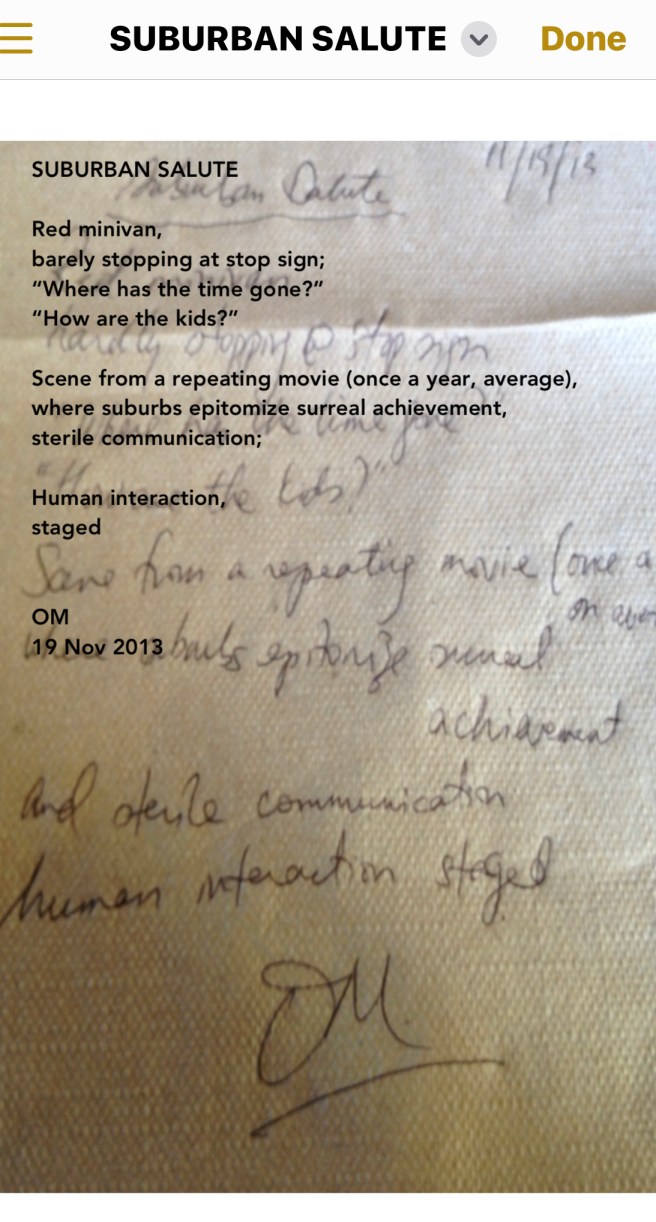 SUBURBAN SALUTE
Done
11/19/13
SUBURBAN SALUTE
Salute
Red minivan,
barely stopping at stop sign;
“Where has the time gone?”
“How are the kids?”
hardly stopping @ stop sign
Scene from a repeating movie (once a year, average),
where suburbs epitomize surreal achievement,
the time gone
sterile communication;
the kids?”
Human interaction,
staged
Scene from a repeating movie (once a
on
OM
19 Nov 2013
epitomize surreal
achievement
And sterile communication
human interaction staged
OM